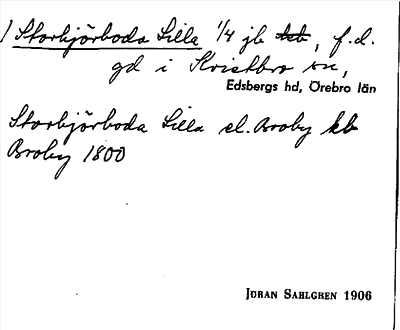 1) Storbjörboda Lilla 1/4 jb kb, f.d.
gd i Kvistbro sn,
Edsbergs hd, Örebro län
Storbjörboda Lilla el. Broby kb
Broby 1800
JÖRAN SAHLGREN 1906